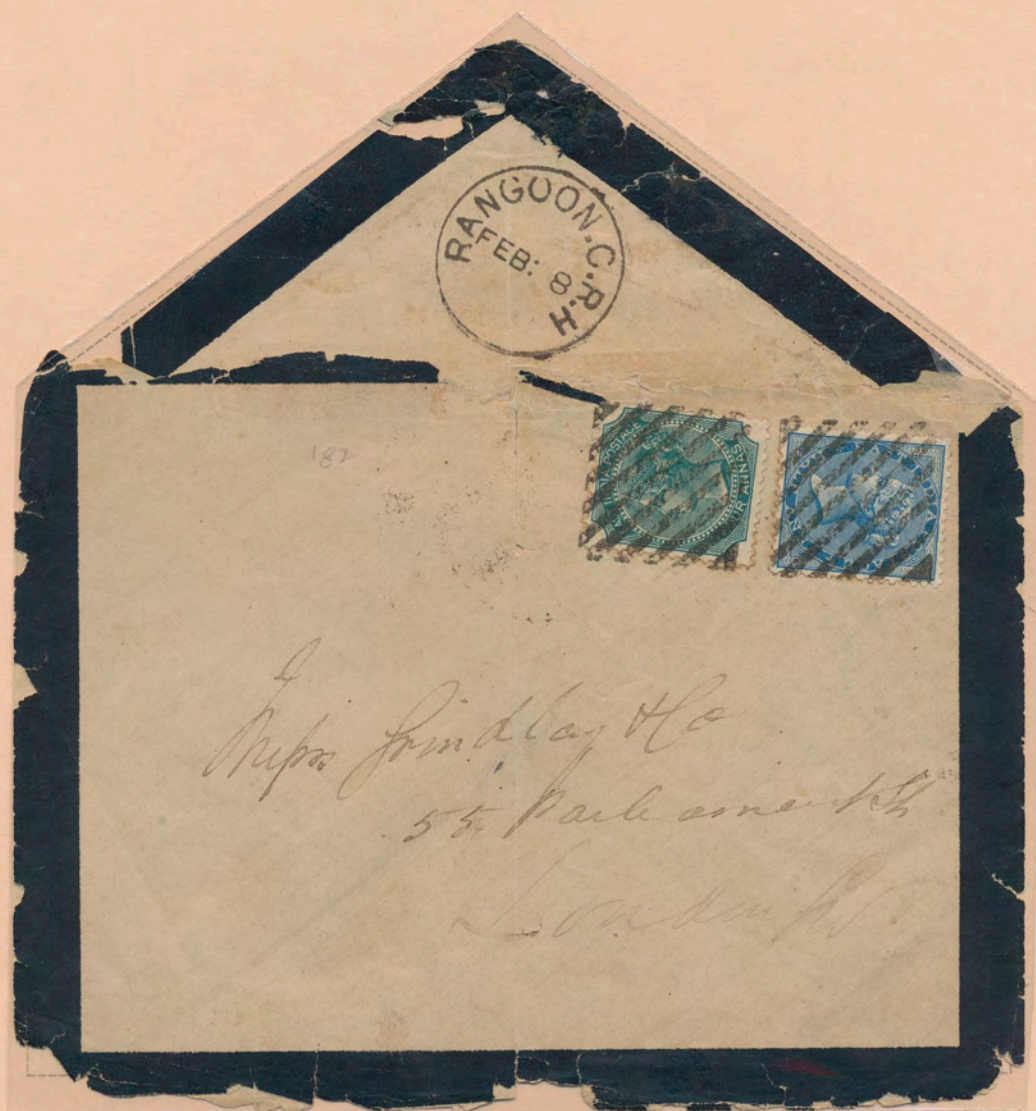 RANGOON.C.R.H
FEB: 8
'82
INDIA POSTAGE
FOUR ANNAS
INDIA
HALF ANNA
Messrs Grindlay & Co
55 Parliament St
London